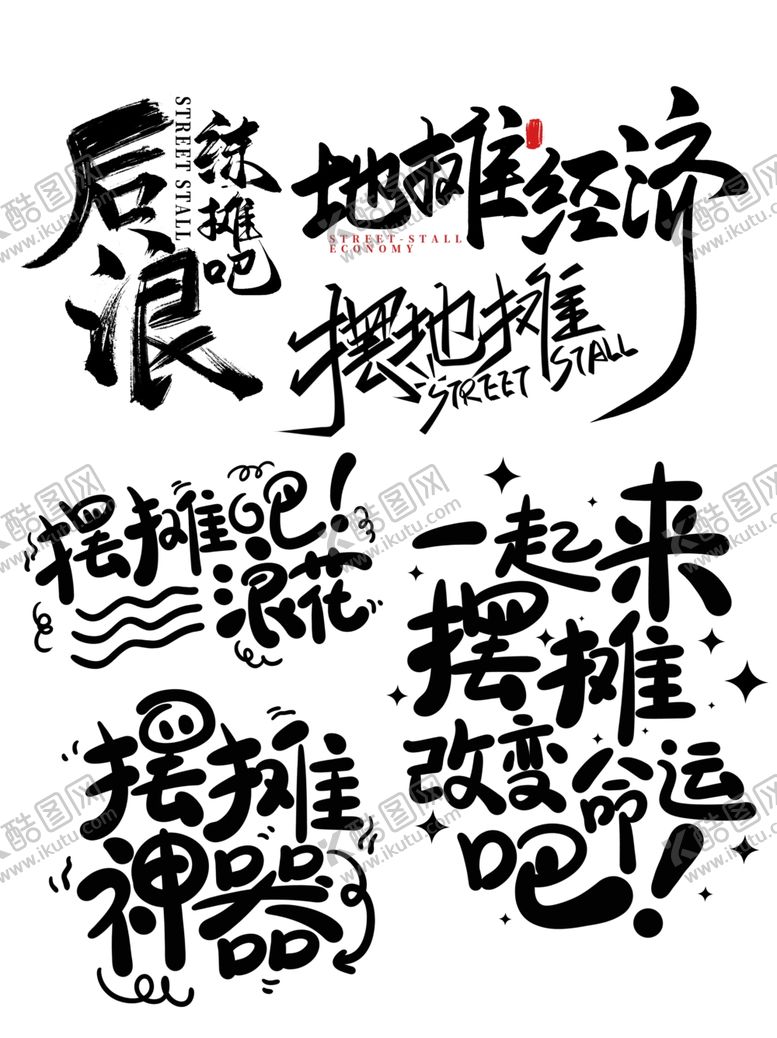 后浪
练摊吧
STREET STALL
地摊经济
STREET-STALL
ECONOMY
摆地摊
STREET STALL
摆摊吧！
浪花
一起来
摆摊
改变命运
吧！
摆摊
神器
酷图网
www.ikutu.com